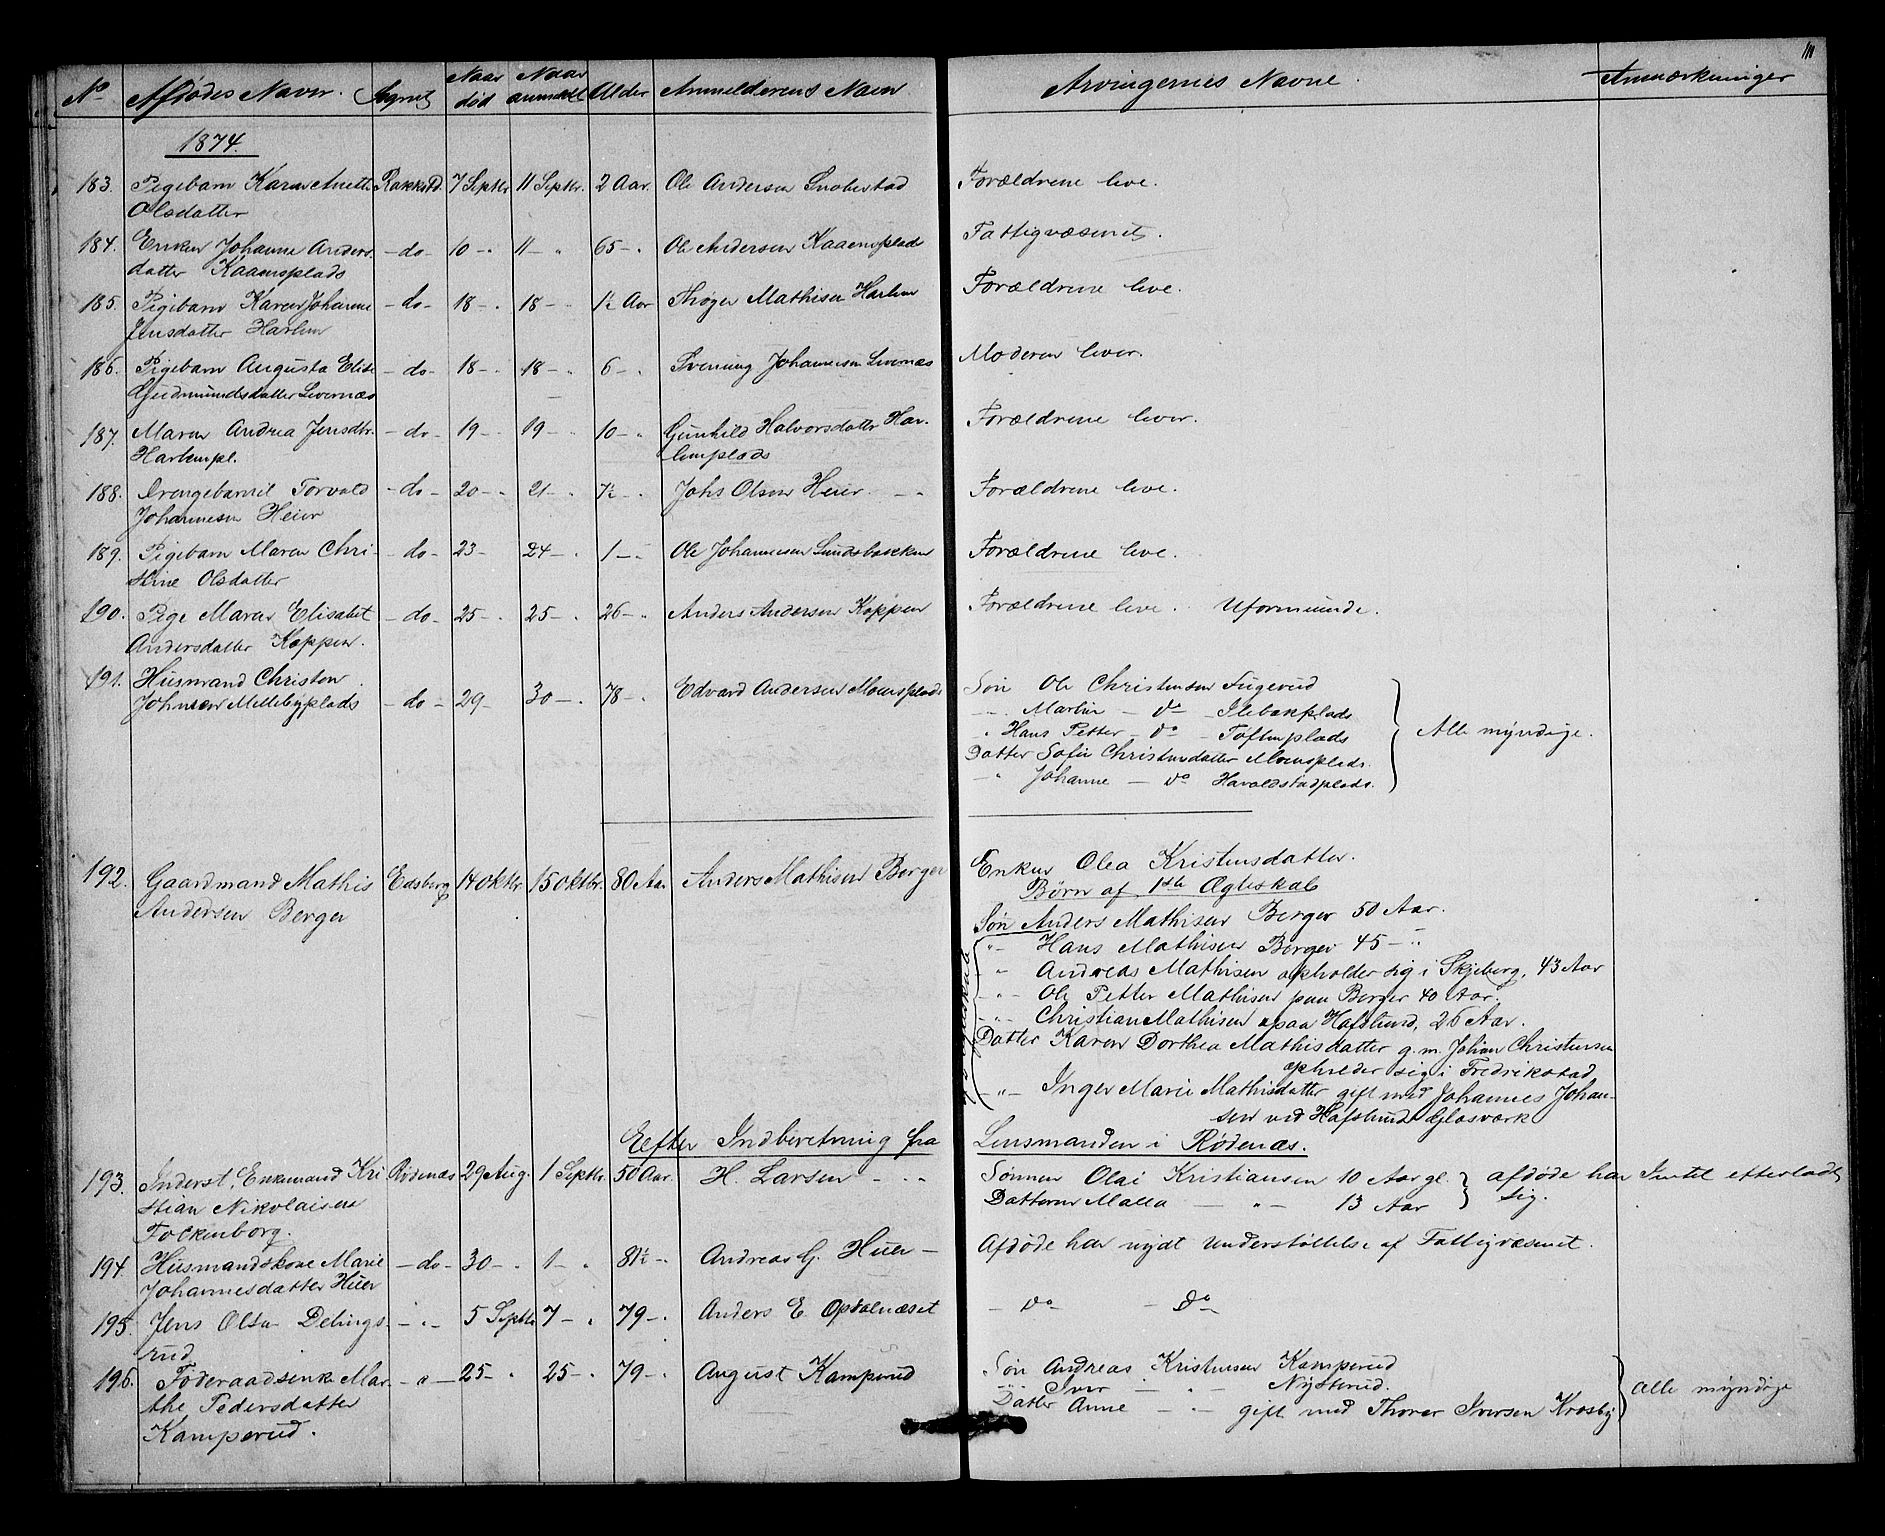 111
No Afdødes Navn. Sognet Naar død Naar anmeldt Alder Anmelderens Navn Arvingernes Navne. Anmærkninger
1874.
183. Pigebarn Karen Anette Rakkstd. 7 Septbr 11 Septbr. 2 Aar. Ole Andersen Forældrene leve.
Olsdatter
184. Enken Johanne Anders- - do - 10 - " 11 - " 65 - " Ole Andersen Kaaensplads Fattigvæsenet.
datter Kaaensplads
185. Pigebarn Karen Johanne - do - 18 - " 18 - " 1½ Aar Thøger Mathisen Harlem Forældrene leve.
Jensdatter Harlem
186. Pigebarn Augusta Elise - do - 18 - " 18 - " 6 - " Svening Johannesen Levernæs Moderen lever.
Gudmundsdatter Levernæs
187. Maren Andrea Jensdtr. - do - 19 - 19 - 10 - " Gunhild Halvorsdatter Har- Forældrene lever.
Harlempl. lemplads
188. Drengebarnet Torvald - do - 20 - " 21 - " 7½ - " Johs Olsen Heier. - " Forældrene leve.
Johannesen Heier
189. Pigebarn Maren Chri- - do - 23 - 24 - " 1 - " Ole Johannesen Lundsbakken Forældrene leve.
stine Olsdatter
190. Pige Maren Elisabet - do - 25 - " 25 - " 26 - " Anders Andersen Koppen Forældrene leve. Uformuende.
Andersdatter Koppen.
191. Husmand Christen
Johnsen Mellebyplads - do - 29 - 30 - " 78 - " Edvard Andersen Moensplads Søn Ole Christensen Fugerud
- " Martin - do - Ilebækplads
" Hans Petter - do - Toftenplads Alle myndige.
Datter Sofie Christensdatter Moensplads.
- " Johanne - do Haraldstadplads.
192. Gaardmand Mathis Edsberg 14 Oktbr. 15 Oktbr. 80 Aar. Anders Mathisen Berger Enken Olea Kristensdatter.
Andersen Berger Børn af 1ste Ægteskab
Søn Anders Mathisen Berger 50 Aar.
" - Hans Mathisen Berger 45 - "
" Andreas Mathisen opholder sig i Skjeberg, 43 Aar
- " - Ole Petter Mathisen paa Berger 40 Aar.
- " - Christian Mathisen paa Hafslund, 26 Aar.
Datter Karen Dorthea Mathisdatter g. m. Johan Christensen
opholder sig i Fredrikstad
- " - Inger Marie Mathisdatter gift med Johannes Johan-
sen ved Hafslund Glasværk
Eefter Indberetning fra Lensmanden i Rødenæs.
193. Inderst, Enkemand Kri Rødenæs 29 Aug. 1 Septbr. 50 Aar. H. Larsen - " Sønnen Olai Kristiansen 10 Aar gl. afdøde har Intet efterladt
stian Nikolaisen Datteren Malla - " - 13 Aar sig.
Fockenborg.
194. Husmandskone Marie - do - 30 - " 1 - " 81½ - " Andreas G. Huer - Afdøde har nydt Understøttelse af Fattigvæsenet.
Johannesdatter Huer
195. Jens Olsen Delings- - " - 5 Septbr 7 - " 79 - " Anders E. Opdalnæset - do - - do -
rud
196. Føderaadsenke Mar- - " - 25 - " 25 - " 79 - " August Kamperud Søn Andreas Kristensen Kamperud
the Pedersdatter - " Iver - " - Nysterud. alle myndige
Kamperud. Datter Anne - " - gift med Thorer Iversen Krosby